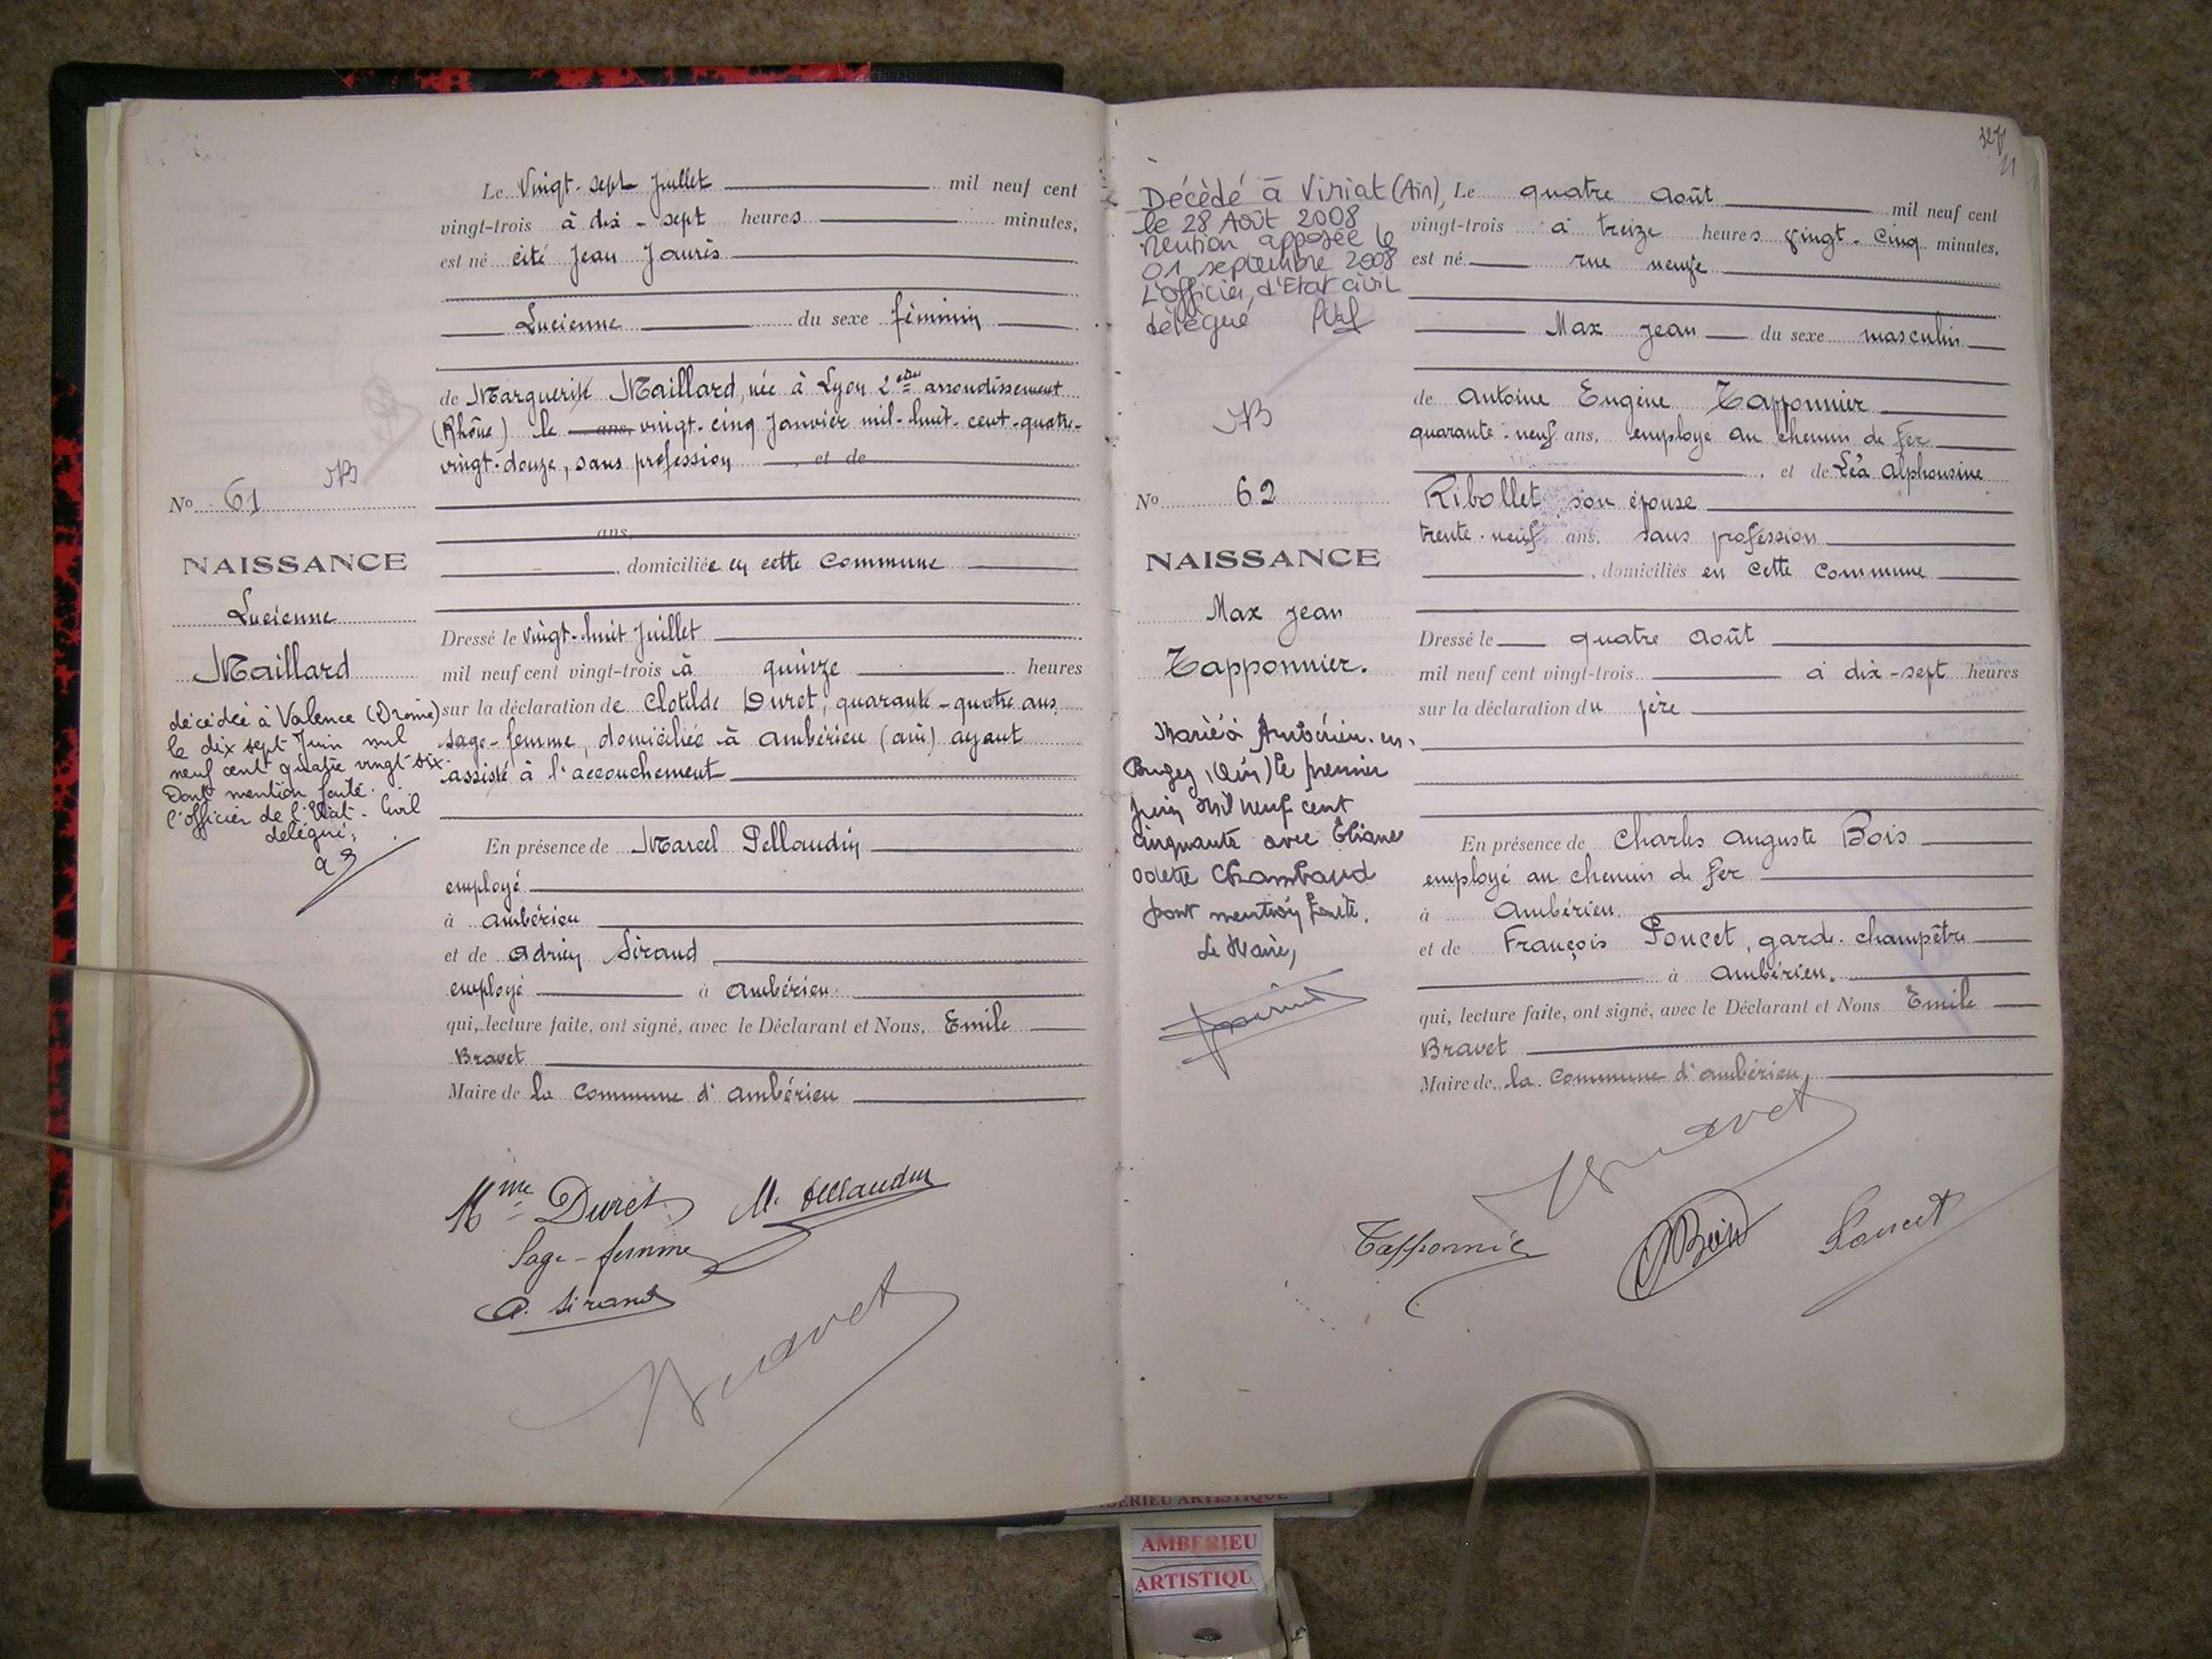 Le Vingt-sept Juillet mil neuf cent
vingt-trois à dix-sept heures minutes,
est né cité Jean Jaurès
Lucienne du sexe féminin
de Marguerite Maillard, née à Lyon 2eme arrondissement
(Rhône) le ans, vingt-cinq Janvier mil-huit-cent-quatre-
vingt-douze, sans profession , et de
ans,
, domiciliée en cette Commune
Dressé le vingt-huit Juillet
mil neuf cent vingt-trois à quinze heures
sur la déclaration de Clotilde Duret, quarante-quatre ans,
sage-femme, domiciliée à Ambérieu (ain) ayant
assisté à l'accouchement
En présence de Marcel Pellaudin
employé
à Ambérieu
et de Adrien Siraud
employé à Ambérieu
qui, lecture faite, ont signé, avec le Déclarant et Nous, Emile
Bravet
Maire de la Commune d'Ambérieu
No 61
NAISSANCE
Lucienne
Maillard
décédée à Valence (Drome)
le dix sept Juin mil
neuf cent quatre vingt six
Dont mention faite.
l'officier de l'Etat-Civil
délégué:
Mme Duret
Sage-femme
M. Pellaudin
A. Siraud
Bravet
Décédé à Viriat (Ain),
le 28 Août 2008
Mention apposée le
01 septembre 2008
L'officier d'Etat civil
délégué
Le quatre Août mil neuf cent
vingt-trois à treize heures vingt-cinq minutes,
est né rue neuve
Max Jean du sexe masculin
de Antoine Eugène Tapponnier
quarante-neuf ans, employé au chemin de Fer
, et de Léa Alphonsine
Ribollet son épouse
trente-neuf ans, sans profession
, domiciliés en Cette Commune
Dressé le quatre Août
mil neuf cent vingt-trois à dix-sept heures
sur la déclaration du père
En présence de Charles Auguste Bois
employé au chemin de fer
à Ambérieu
et de François Poncet, garde-champêtre
à Ambérieu.
qui, lecture faite, ont signé, avec le Déclarant et Nous Emile
Bravet
Maire de la Commune d'Ambérieu
No 62
NAISSANCE
Max Jean
Tapponnier.
Marié à Ambérieu-en-
Bugey, (Ain) le premier
Juin Mil neuf cent
cinquante avec Eliane
Odette Chambaud
Dont mention faite.
Le Maire,
Bravet
Tapponnier
Bois
Poncet
AMBERIEU ARTISTIQUE
AMBERIEU
ARTISTIQU